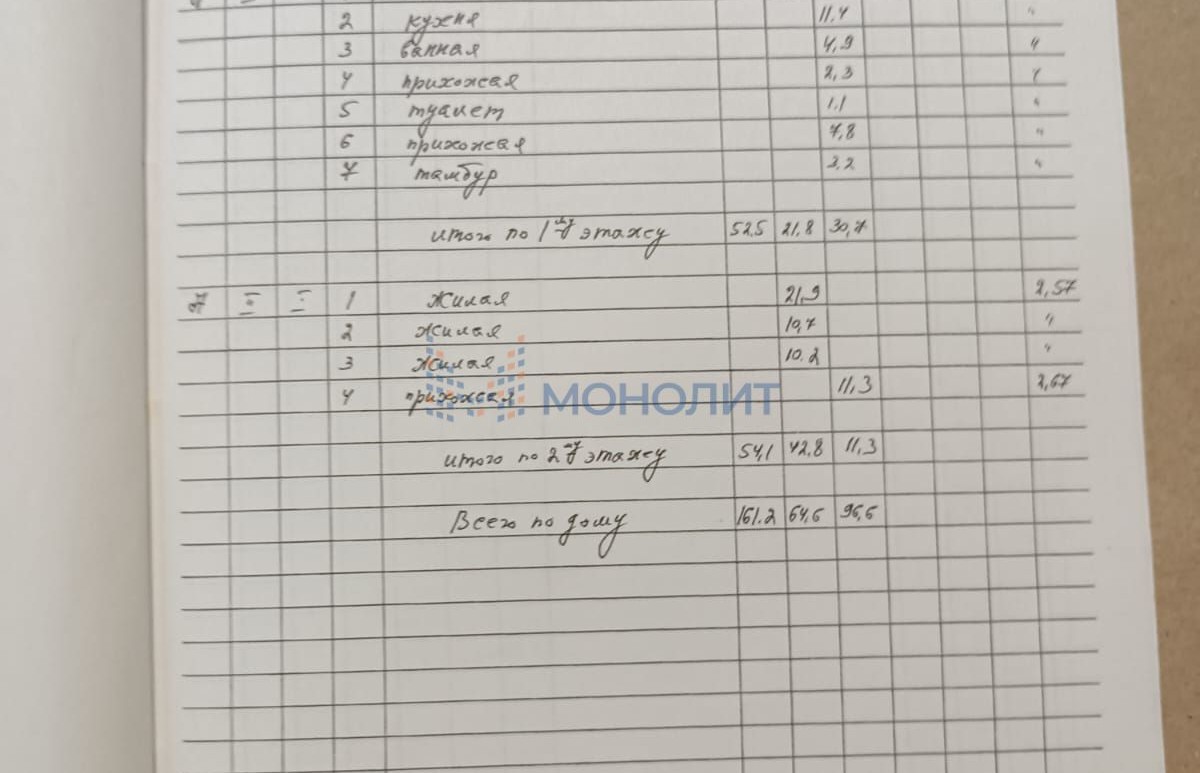 2 кухня 11,4 "
3 ванная 4,9 "
4 прихожая 2,3 "
5 туалет 1.1 "
6 прихожая 7,8 "
7 тамбур 3.2 "
итого по 1му этажу 52,5 21,8 30,7
1 жилая 21,9 2,57
2 жилая 10,7 "
3 жилая 10.2 "
4 прихожая 11,3 2,67
МОНОЛИТ
итого по 2му этажу 54,1 42,8 11,3
Всего по дому 161.2 64,6 96,6